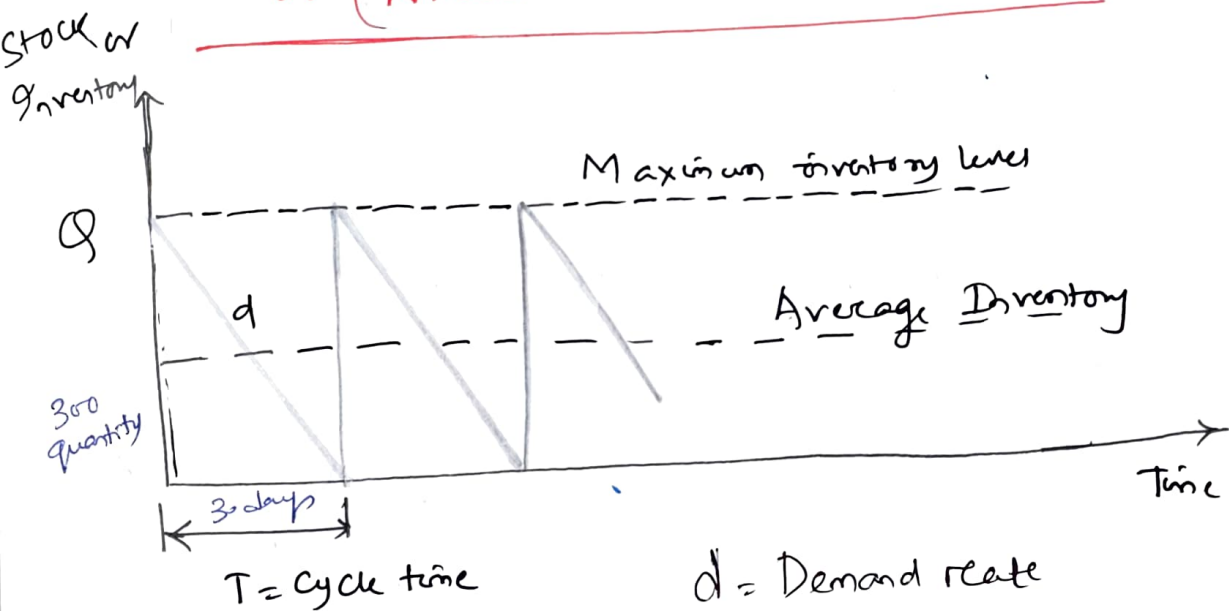 Stock or
Inventory
Maximum inventory level
Q
d
Average Inventory
300
quantity
30 days
Time
T = Cycle time
d = Demand rate